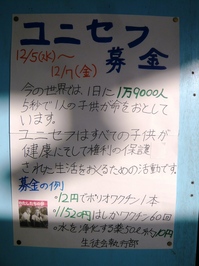 ユニセフ
募金
12/5(水)〜
12/7(金)
今の世界では1日に1万9000人
5秒で1人の子供が命をおとして
います。
ユニセフはすべての子供が
健康にそして権利の保護
された生活をおくるための活動です。
募金の例
・12円でポリオワクチン1本
・1152円はしかワクチン60回
・水を浄化する薬50
生徒会執行部